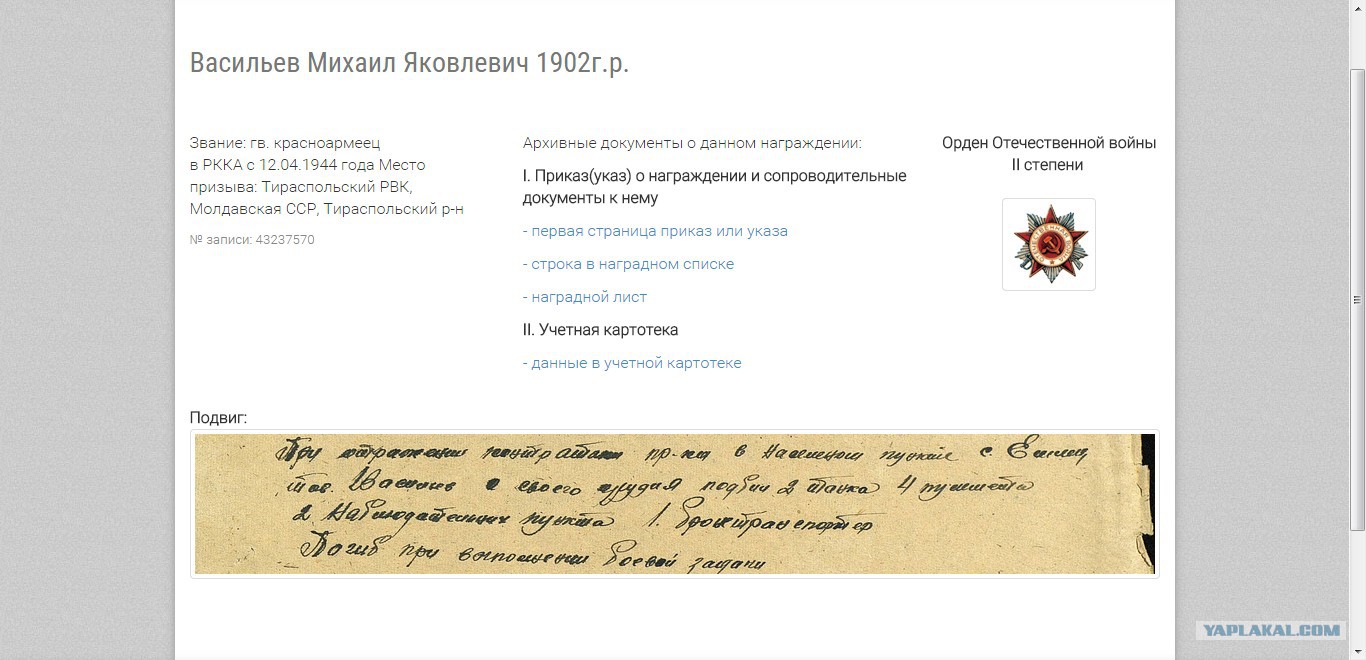 Васильев Михаил Яковлевич 1902г.р.
Звание: гв. красноармеец
в РККА с 12.04.1944 года Место
призыва: Тираспольский РВК,
Молдавская ССР, Тираспольский р-н
№ записи: 43237570
Архивные документы о данном награждении:
I. Приказ(указ) о награждении и сопроводительные
документы к нему
- первая страница приказ или указа
- строка в наградном списке
- наградной лист
II. Учетная картотека
- данные в учетной картотеке
Орден Отечественной войны
II степени
Подвиг:
При отражении контратаки пр-ка в населеном пункте с.
тов. Васильев с своего орудия подбил 2 танка 4 пулемета
2 Наблюдательных пункта 1. бронетранспортер
Погиб при выполнении боевой задачи
YAPLAKAL.COM